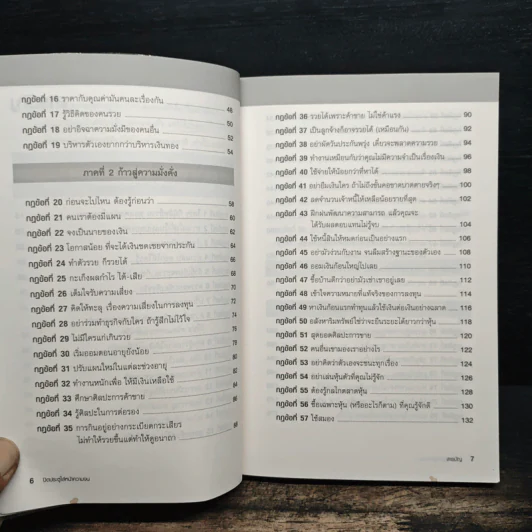 กฎข้อที่ 16 ราคากับคุณค่ามันคนละเรื่องกัน 48
กฎข้อที่ 17 รู้วิธีคิดของคนรวย 50
กฎข้อที่ 18 อย่าอิจฉาความมั่งมีของคนอื่น 52
กฎข้อที่ 19 บริหารตัวเองยากกว่าบริหารเงินทอง 54
ภาคที่ 2 ก้าวสู่ความมั่งคั่ง
กฎข้อที่ 20 ก่อนจะไปไหน ต้องรู้ก่อนว่า 58
กฎข้อที่ 21 คนเราต้องมีแผน 60
กฎข้อที่ 22 จงเป็นนายของเงิน 62
กฎข้อที่ 23 โอกาสน้อย ที่จะได้เงินชดเชยจากประกัน 64
กฎข้อที่ 24 ทำตัวรวย ก็รวยได้ 66
กฎข้อที่ 25 กะเก็งผลกำไร ได้-เสีย 68
กฎข้อที่ 26 เต็มใจรับความเสี่ยง 70
กฎข้อที่ 27 คิดให้ทะลุ เรื่องความเสี่ยงในการลงทุน 72
กฎข้อที่ 28 อย่าร่วมทำธุรกิจกับใคร ถ้ารู้สึกไม่ไว้ใจ 74
กฎข้อที่ 29 ไม่มีใครแก่เกินรวย
กฎข้อที่ 30 เริ่มออมตอนอายุยังน้อย 78
กฎข้อที่ 31 ปรับแผนใหม่ในแต่ละช่วงอายุ
กฎข้อที่ 32 ทำงานหนักเพื่อ ให้มีเงินเหลือใช้
กฎข้อที่ 33 ศึกษาศิลปะการค้าขาย 84
กฎข้อที่ 34 รู้ศิลปะในการต่อรอง 86
กฎข้อที่ 35 การกินอยู่อย่างกระเบียดกระเสียร
ไม่ทำให้รวยขึ้นแต่ทำให้ดูอนาถา 88
6
กฎข้อที่ 36 รวยได้เพราะค้าขาย ไม่ใช่ค้าแรง 90
กฎข้อที่ 37 เป็นลูกจ้างก็อาจรวยได้ (เหมือนกัน) 92
กฎข้อที่ 38 อย่าผัดวันประกันพรุ่ง เดี๋ยวจะพลาดความรวย 94
กฎข้อที่ 39 ทำงานเหมือนกับว่าคุณไม่มีความจำเป็นเรื่องเงิน 96
กฎข้อที่ 40 ใช้จ่ายให้น้อยกว่าที่หาได้ 98
กฎข้อที่ 41 อย่ายืมเงินใคร ถ้าไม่ถึงขั้นคอขาดบาดตายจริงๆ 100
กฎข้อที่ 42 ลดจำนวนเจ้าหนี้ให้เหลือน้อยรายที่สุด 102
กฎข้อที่ 43 ฝึกฝนพัฒนาความสามารถ แล้วคุณจะ
ได้รับผลตอบแทนไม่รู้จบ 104
กฎข้อที่ 44 ใช้หนี้สินให้หมดก่อนเป็นอย่างแรก 106
กฎข้อที่ 45 อย่ามัวง่วนกับงาน จนลืมสร้างฐานะของตัวเอง 108
กฎข้อที่ 46 ออมเงินก้อนใหญ่ไปเลย 110
กฎข้อที่ 47 ซื้อบ้านดีกว่าอย่ามัวเช่าเขาอยู่เลย 112
กฎข้อที่ 48 เข้าใจความหมายที่แท้จริงของการลงทุน 114
กฎข้อที่ 49 หาเงินก้อนแรกทำทุนแล้วใช้เงินต่อเงินอย่างฉลาด 116
กฎข้อที่ 50 อสังหาริมทรัพย์ใช่ว่าจะยืนระยะได้ยาวกว่าหุ้น 118
กฎข้อที่ 51 สุดยอดศิลปะการขาย 120
กฎข้อที่ 52 คนอื่นเขามองเราอย่างไร 122
กฎข้อที่ 53 อย่าคิดว่าตัวเองจะชนะทุกเรื่อง 124
กฎข้อที่ 54 อย่าเล่นหุ้นตัวที่คุณไม่รู้จัก 126
กฎข้อที่ 55 ต้องรู้กลไกตลาดหุ้น 128
กฎข้อที่ 56 ซื้อเฉพาะหุ้น (หรืออะไรก็ตาม) ที่คุณรู้จักดี 130
กฎข้อที่ 57 ใช้สมอง 132
สารบัญ 7